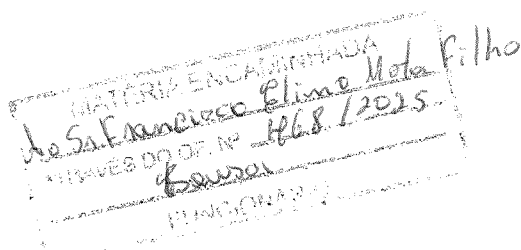 MATÉRIA ENCAMINHADA
Ao Sr. Francisco Elimo Mota Filho
ATRAVÉS DO OF. Nº 468 / 2025
FUNCIONÁRIO